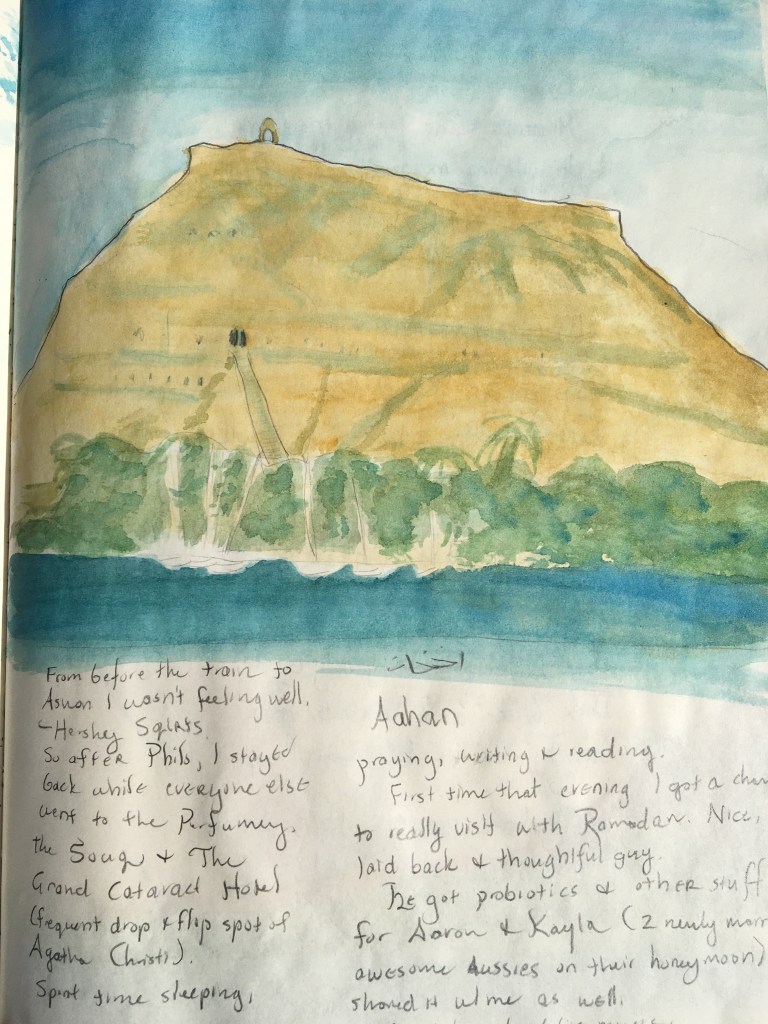 From before the train to
Aswan I wasn't feeling well.
- Hershey Squirts.
So after Phils, I stayed
back while everyone else
went to the Perfumery,
the Souq & The
Grand Cataract Hotel
(frequent drop & flop spot of
Agatha Christi).
Spent time sleeping,
Aahan
praying, writing & reading.
First time that evening I got a chan
to really visit with Ramadan. Nice,
laid back & thoughtful guy.
He got probiotics & other stuff
for Aaron & Kayla (2 newly marr
awesome Aussies on their honeymoon)
shared it w/ me as well.